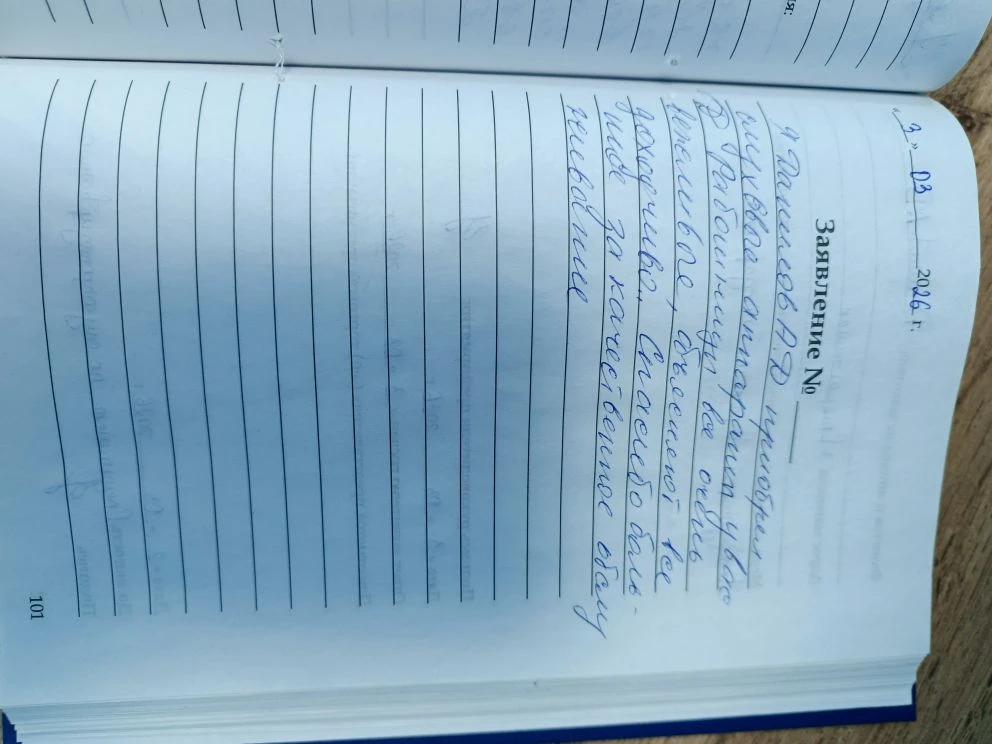 «3» 03 2026 г.
Заявление № ____
Я Данилов А Д приобрел
слуховые аппараты у вас
Работницы все очень
вежливые, объясняют все
доходчиво. Спасибо боль-
шое за качественное обслу
живание
101
ия: